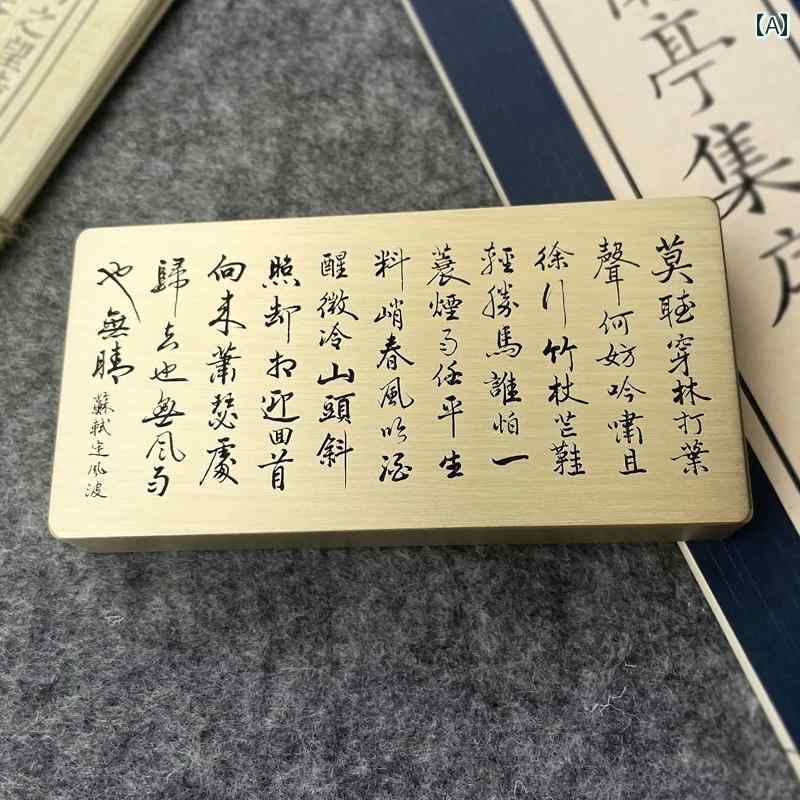 【A】
亭集序
莫聽穿林打葉
聲何妨吟嘯且
徐行竹杖芒鞋
輕勝馬誰怕一
蓑煙雨任平生
料峭春風吹酒
醒微冷山頭斜
照却相迎回首
向来蕭瑟處
歸去也無風雨
也無晴
蘇軾定風波